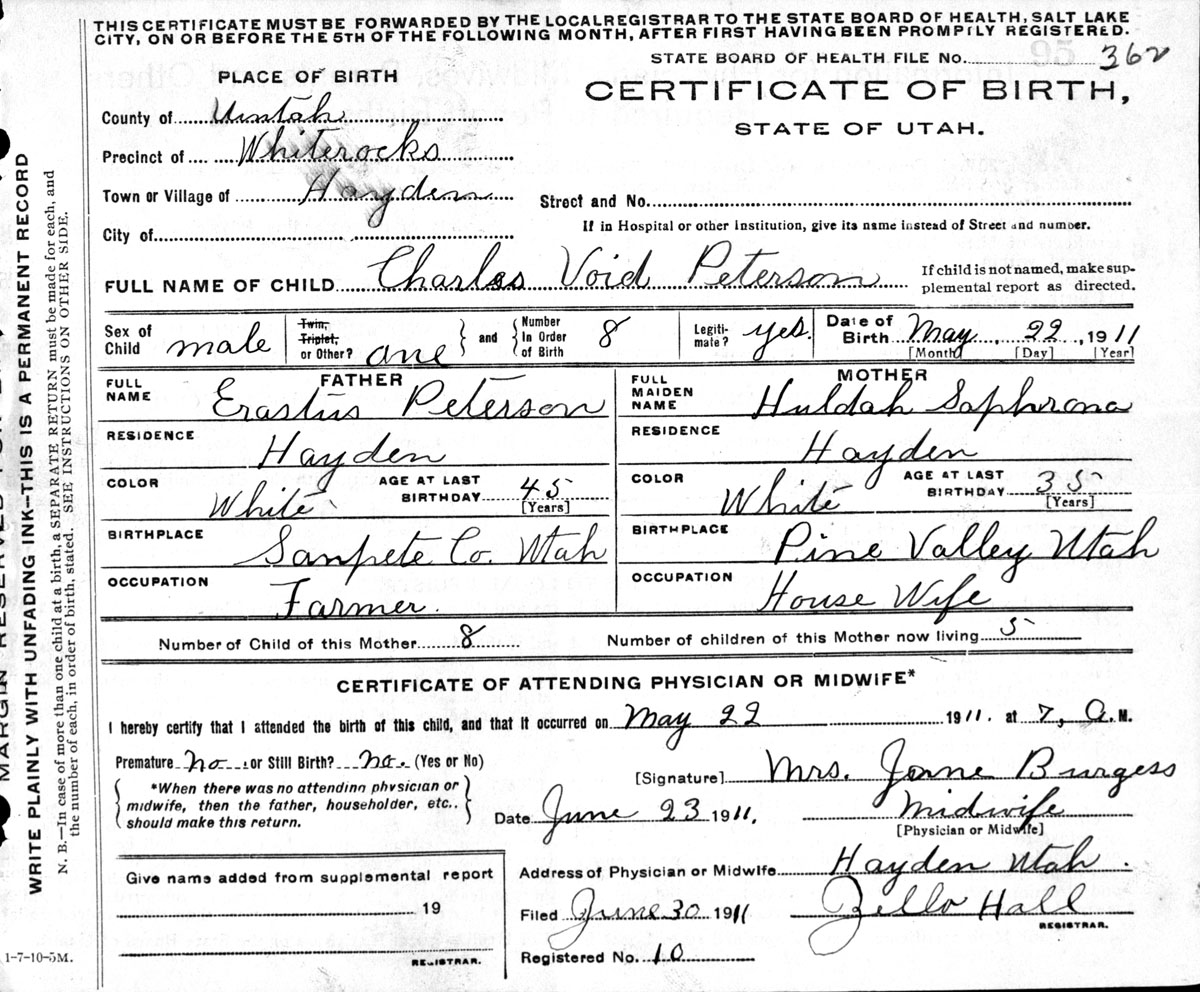 THIS CERTIFICATE MUST BE FORWARDED BY THE LOCAL REGISTRAR TO THE STATE BOARD OF HEALTH, SALT LAKE
CITY, ON OR BEFORE THE 5TH OF THE FOLLOWING MONTH, AFTER FIRST HAVING BEEN PROMPTLY REGISTERED.
STATE BOARD OF HEALTH FILE No. 362
PLACE OF BIRTH
CERTIFICATE OF BIRTH,
STATE OF UTAH.
County of Uintah
Precinct of Whiterocks
Town or Village of Hayden
Street and No.
City of
If in Hospital or other Institution, give its name instead of Street and number.
FULL NAME OF CHILD Charles Void Peterson
If child is not named, make sup-
plemental report as directed.
Sex of Child male
Twin, Triplet, or Other? one
and Number In Order of Birth 8
Legiti-mate? yes.
Date of Birth May 22, 1911
[Month] [Day] [Year]
FATHER
FULL NAME Erastus Peterson
RESIDENCE Hayden
COLOR White
AGE AT LAST BIRTHDAY 45 [Years]
BIRTHPLACE Sanpete Co. Utah
OCCUPATION Farmer.
MOTHER
FULL MAIDEN NAME Huldah Saphrona
RESIDENCE Hayden
COLOR White
AGE AT LAST BIRTHDAY 35 [Years]
BIRTHPLACE Pine Valley Utah
OCCUPATION House Wife
Number of Child of this Mother 8 Number of children of this Mother now living 5
CERTIFICATE OF ATTENDING PHYSICIAN OR MIDWIFE*
I hereby certify that I attended the birth of this child, and that it occurred on May 22 1911. at 7, A. M.
Premature no or Still Birth? no. (Yes or No)
*When there was no attending physician or
midwife, then the father, householder, etc.,
should make this return.
[Signature] Mrs. Jane Burgess
Date June 23 1911, Midwife
[Physician or Midwife]
Give name added from supplemental report
19
REGISTRAR.
Address of Physician or Midwife Hayden Utah.
Filed June 30 1911 Zella Hall
REGISTRAR.
Registered No. 10
1-7-10-5M.
MARGIN RESERVED FOR
WRITE PLAINLY WITH UNFADING INK—THIS IS A PERMANENT RECORD
N. B.—In case of more than one child at a birth, a SEPARATE RETURN must be made for each, and
the number of each, in order of birth, stated. SEE INSTRUCTIONS ON OTHER SIDE.